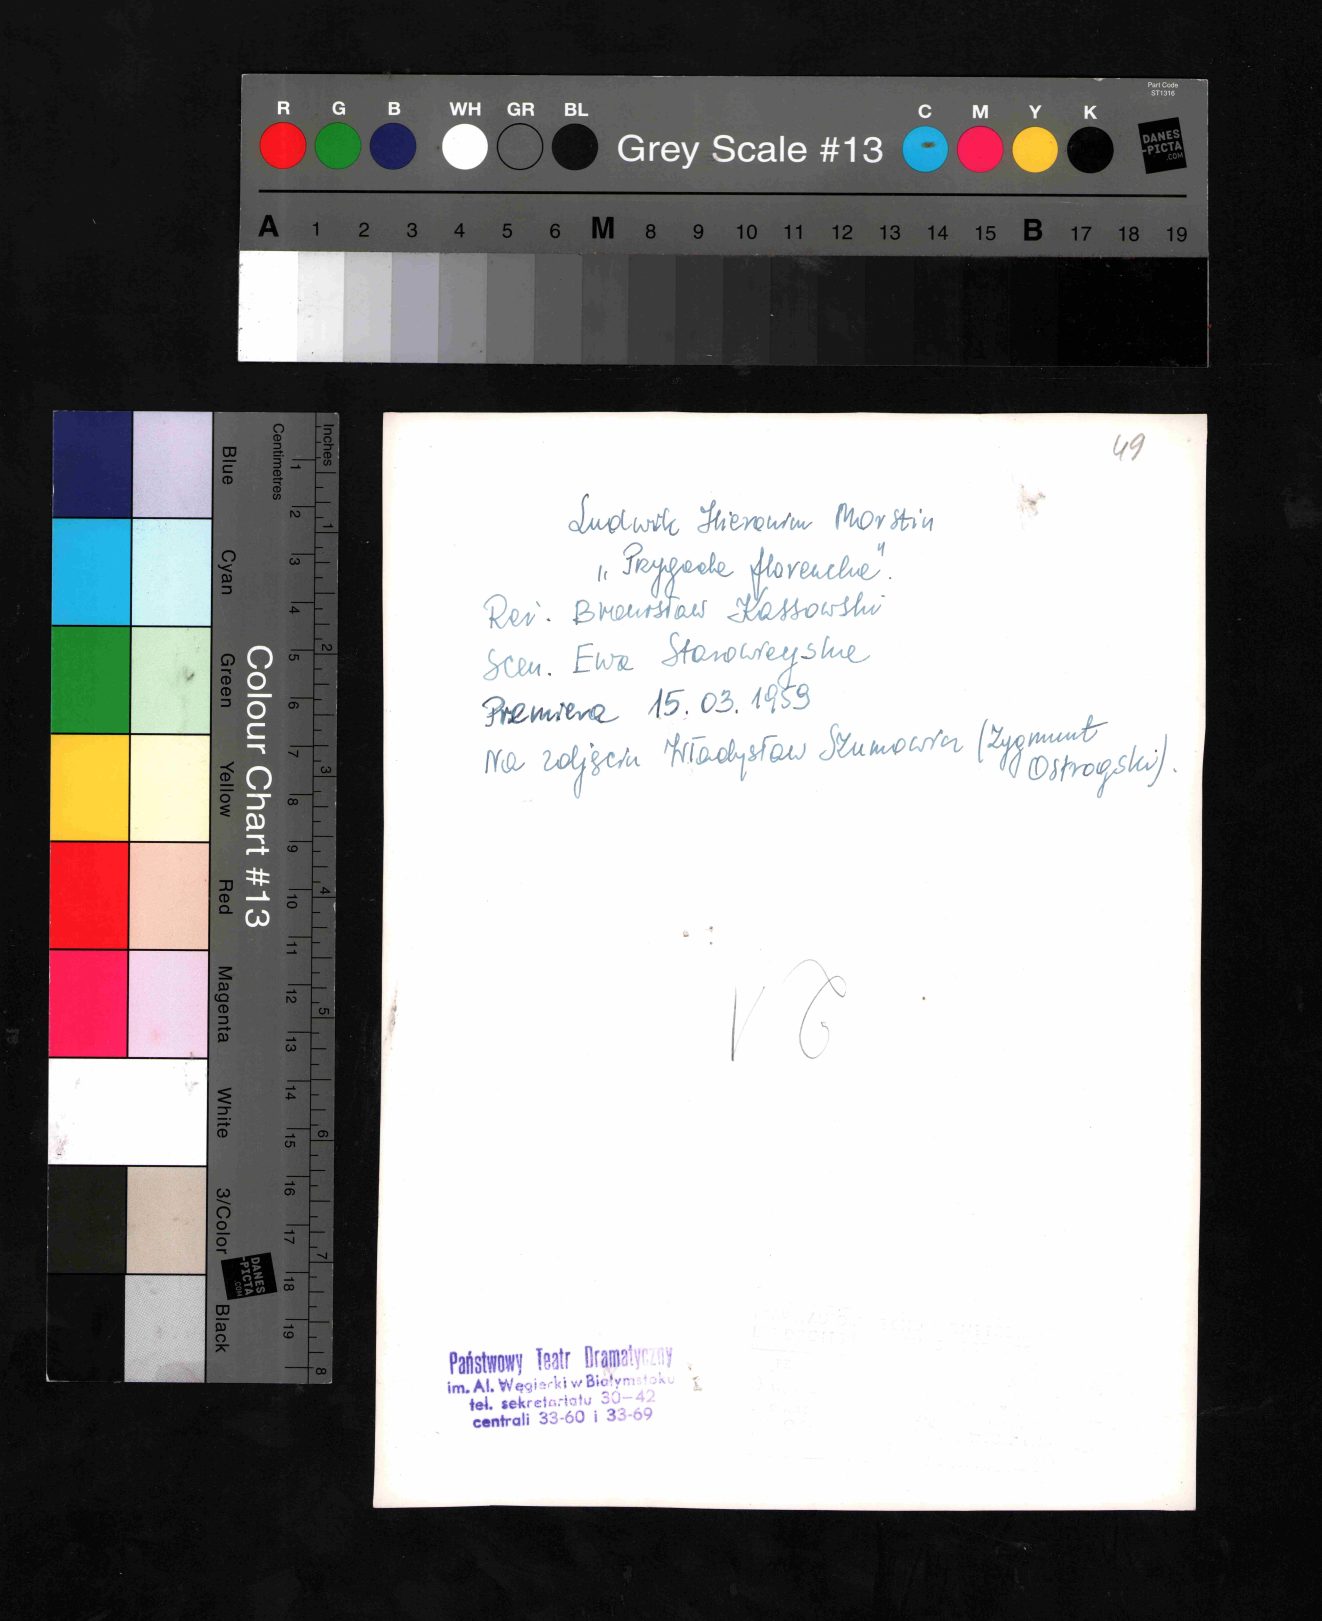 Part Code
ST1316
R G B WH GR BL Grey Scale #13 C M Y K
DANES
-PICTA
.COM
A 1 2 3 4 5 6 M 8 9 10 11 12 13 14 15 B 17 18 19
Colour Chart #13
Blue
Cyan
Green
Yellow
Red
Magenta
White
3/Color
Black
Centimetres
1 2 3 4 5 6 7 8 9 10 11 12 13 14 15 16 17 18 19
Inches
1 2 3 4 5 6 7 8
DANES
-PICTA
.COM
49
Ludwik Hieronim Morstin
„Przygoda florencka".
Reż. Bronisław Kassowski
Scen. Ewa Starowieyska
Premiera 15.03.1959
Na zdjęciu Władysław Szumowicz (Zygmunt
Ostrogski).
Państwowy Teatr Dramatyczny
im. Al. Węgierki w Białymstoku
tel. sekretariatu 30-42
centrali 33-60 i 33-69